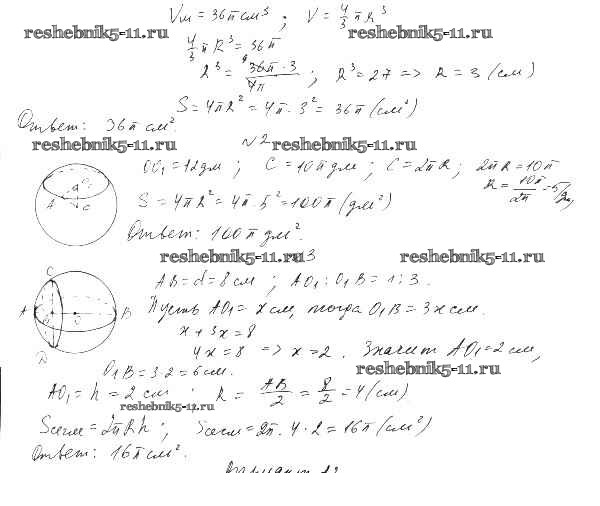 Vш = 36π см³ ; V = 4/3 πR³
reshebnik5-11.ru reshebnik5-11.ru
4/3 πR³ = 36π
R³ = 36π · 3 / 4π ; R³ = 27 => R = 3 (см)
S = 4πR² = 4π · 3² = 36π (см²)
Ответ: 36π см².
№2
reshebnik5-11.ru reshebnik5-11.ru
OO₁ = 12 дм ; C = 10π дм ; C = 2πR ; 2πR = 10π
R = 10π / 2π = 5 (дм)
S = 4πR² = 4π · 5² = 100π (дм²)
Ответ: 100π дм².
A O₁ C
№3
reshebnik5-11.ru reshebnik5-11.ru
AB = d = 8 см ; AO₁ : O₁B = 1 : 3.
C A B D
Пусть AO₁ = x см, тогда O₁B = 3x см.
x + 3x = 8
4x = 8 => x = 2. Значит AO₁ = 2 см,
O₁B = 3·2 = 6 см.
reshebnik5-11.ru
AO₁ = h = 2 см ; R = AB/2 = 8/2 = 4 (см)
reshebnik5-11.ru
Sсегм = 2πRh ; Sсегм = 2π · 4 · 2 = 16π (см²)
Ответ: 16π см².